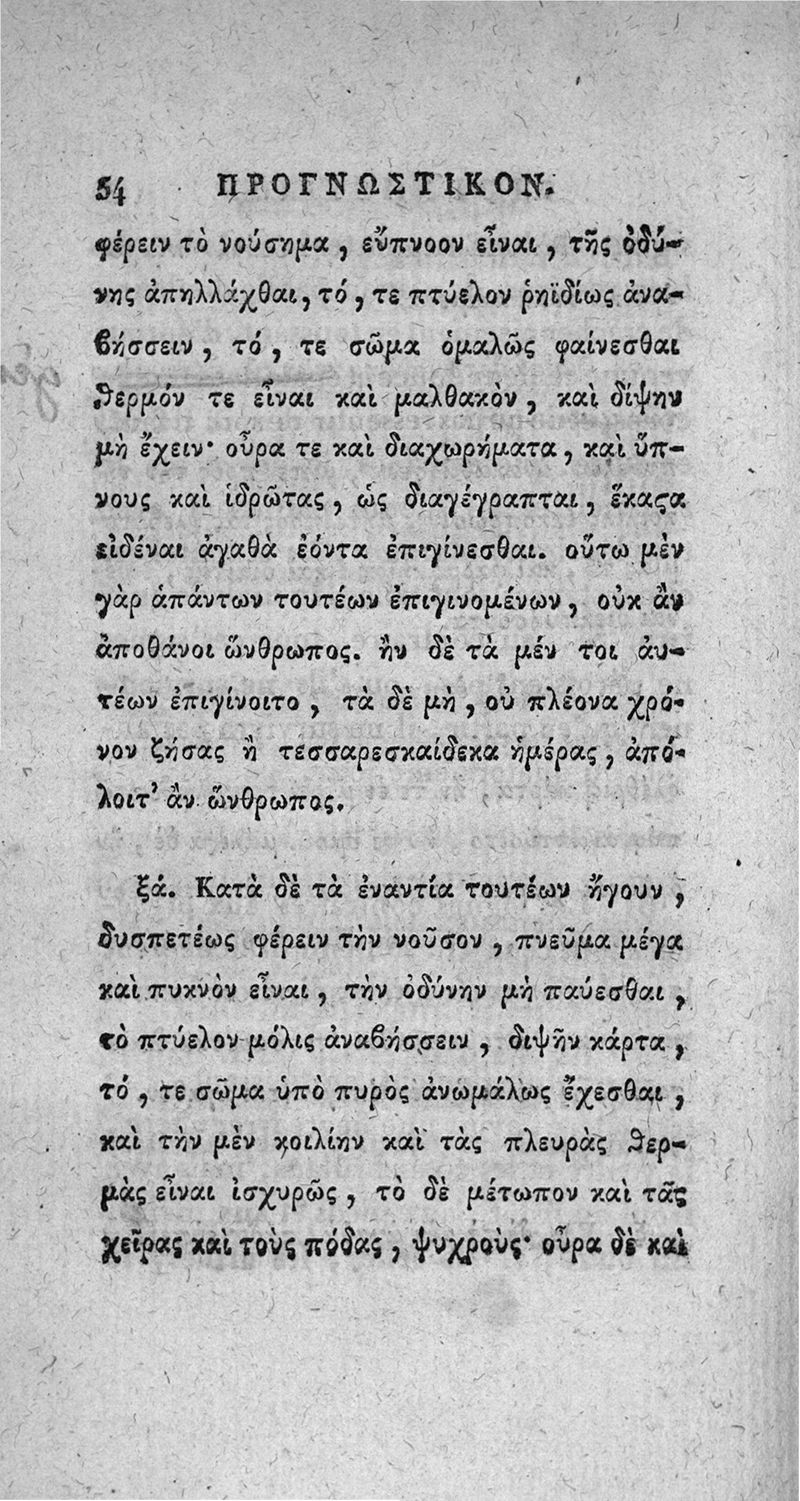 54 ΠΡΟΓΝΩΣΤΙΚΟΝ.
φέρειν τὸ νούσημα, εὔπνοον εἶναι, τῆς ὀδύ-
νης ἀπηλλάχθαι, τό, τε πτύελον ῥηϊδίως ἀνα-
βήσσειν, τό, τε σῶμα ὁμαλῶς φαίνεσθαι
θερμόν τε εἶναι καὶ μαλθακὸν, καὶ δίψην
μὴ ἔχειν· οὖρα τε καὶ διαχωρήματα, καὶ ὕπ-
νους καὶ ἱδρῶτας, ὡς διαγέγραπται, ἕκαϛα
εἰδέναι ἀγαθὰ ἐόντα ἐπιγίνεσθαι. οὕτω μὲν
γὰρ ἁπάντων τουτέων ἐπιγινομένων, οὐκ ἂν
ἀποθάνοι ὥνθρωπος. ἢν δὲ τὰ μέν τοι ἀυ-
τέων ἐπιγίνοιτο, τὰ δὲ μὴ, οὐ πλέονα χρό-
νον ζήσας ἢ τεσσαρεσκαίδεκα ἡμέρας, ἀπό-
λοιτ’ ἂν ὥνθρωπος.
ξά. Κατὰ δὲ τὰ ἐναντία τουτέων ἤγουν,
δυσπετέως φέρειν τὴν νοῦσον, πνεῦμα μέγα
καὶ πυκνὸν εἶναι, τὴν ὀδύνην μὴ παύεσθαι,
τὸ πτύελον μόλις ἀναβήσσειν, διψῆν κάρτα,
τό, τε σῶμα ὑπὸ πυρὸς ἀνωμάλως ἔχεσθαι,
καὶ τὴν μὲν κοιλίην καὶ τὰς πλευρὰς θερ-
μὰς εἶναι ἰσχυρῶς, τὸ δὲ μέτωπον καὶ τᾶς
χεῖρας καὶ τοὺς πόδας, ψυχροὺς· οὖρα δὲ καὶ